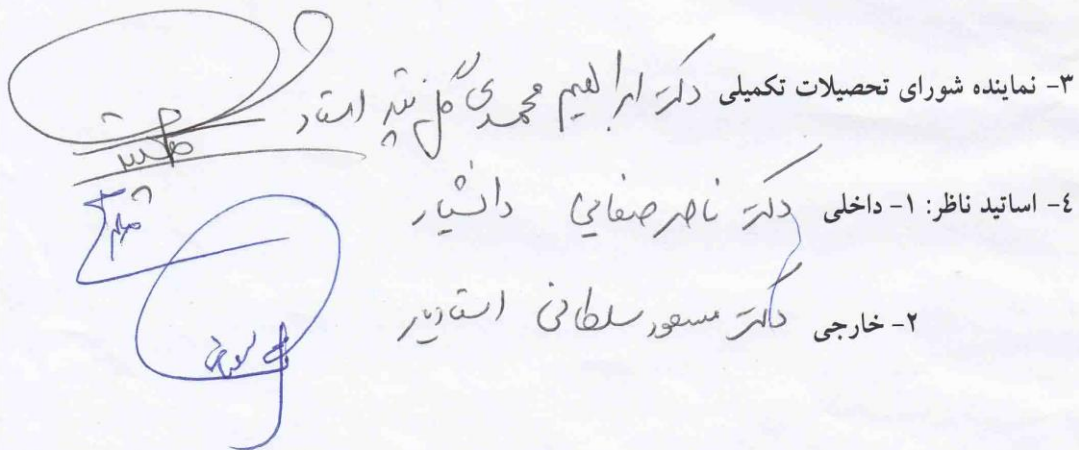 ۳- نماینده شورای تحصیلات تکمیلی دکتر ابراهیم محمدی گل تپه استاد
٤- اساتید ناظر: ۱- داخلی دکتر ناصر صفایی دانشیار
۲- خارجی دکتر مسعود سلطانی استادیار